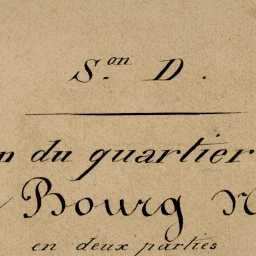 S.on D.
n du quartier
Bourg
en deux parties